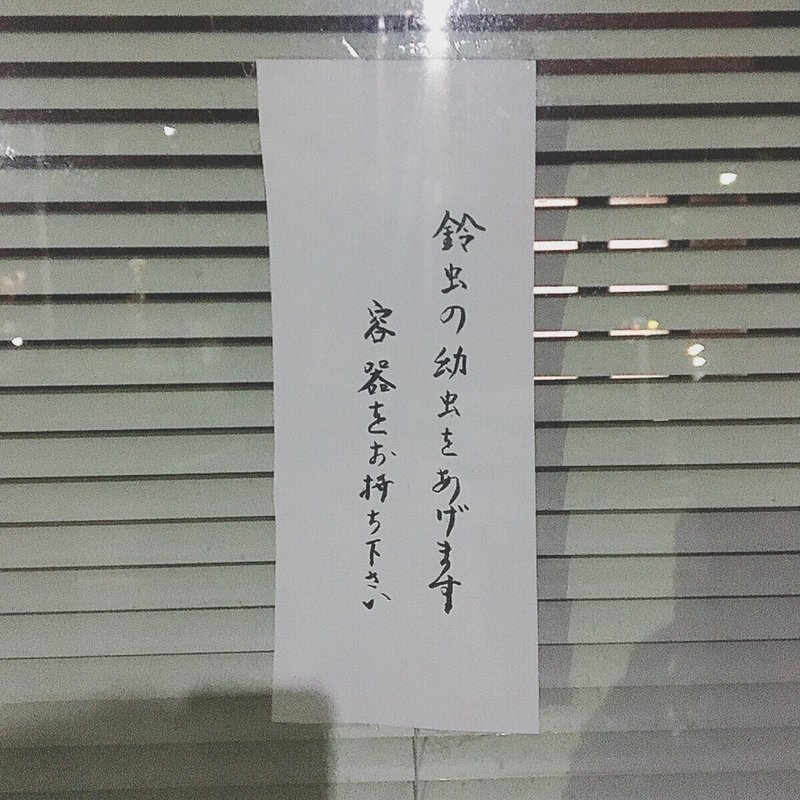 鈴虫の幼虫をあげます
容器をお持ち下さい